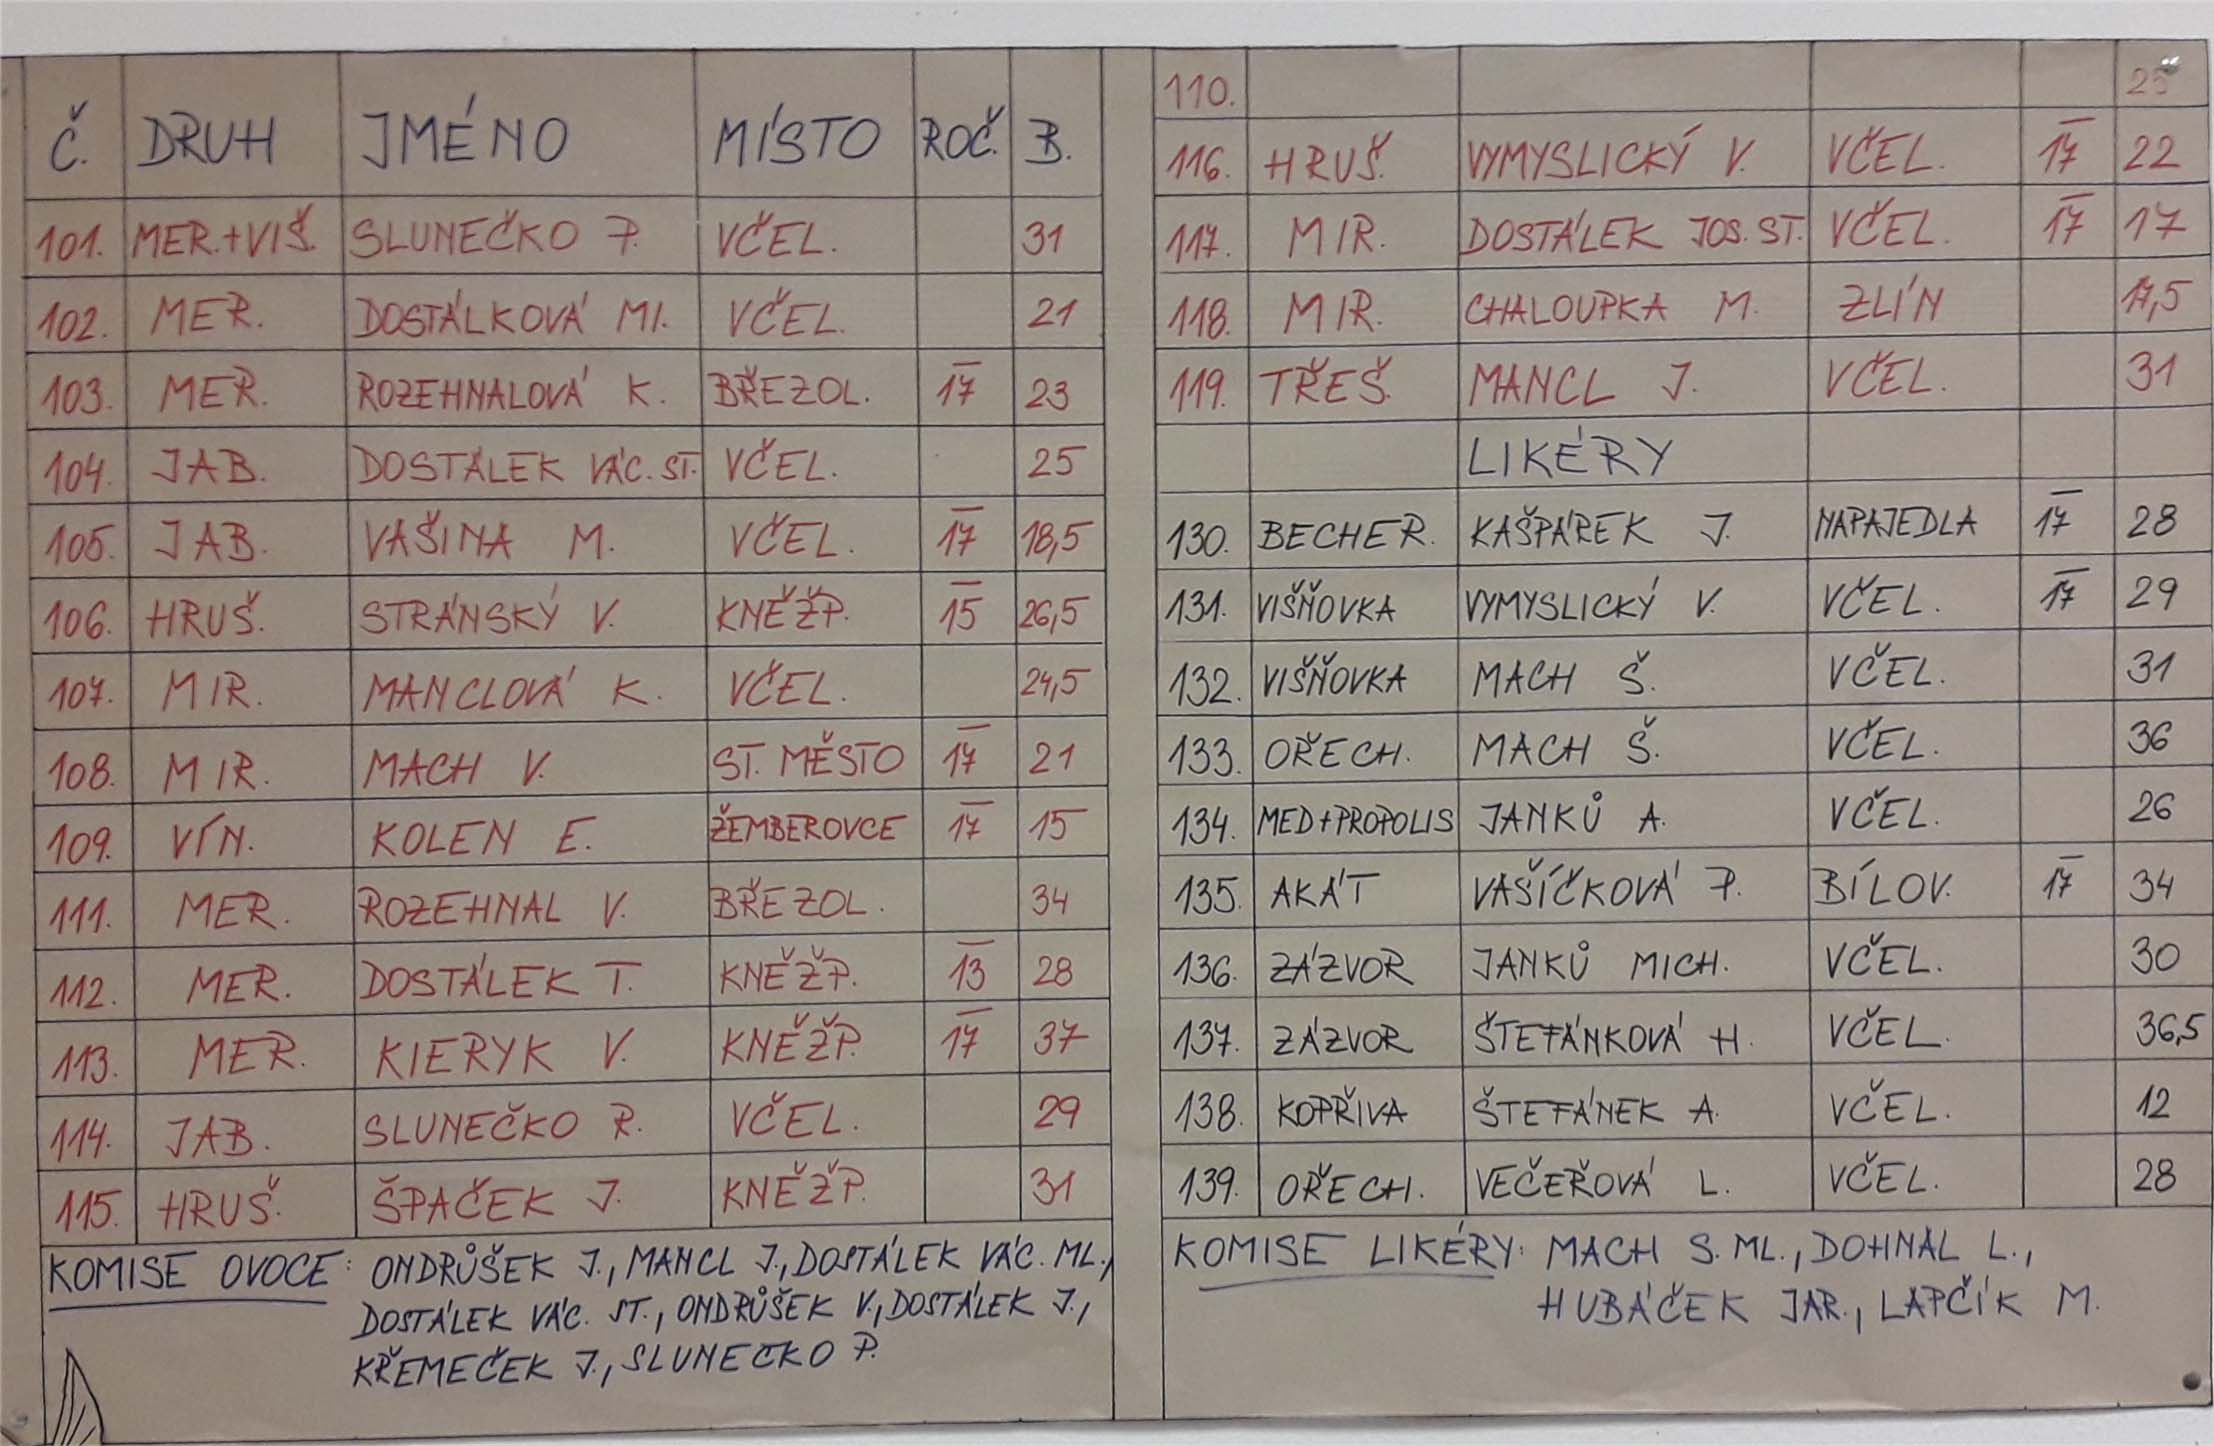 Č. DRUH JMÉNO MÍSTO ROČ. B.
101. MER.+VIŠ. SLUNEČKO P. VČEL. 31
102. MER. DOSTÁLKOVÁ MI. VČEL. 21
103. MER. ROZEHNALOVÁ K. BŘEZOL. 17 23
104. JAB. DOSTÁLEK VÁC. ST. VČEL. 25
105. JAB. VAŠINA M. VČEL. 17 18,5
106. HRUŠ. STRÁNSKÝ V. KNĚŽP. 15 26,5
107. MIR. MANCLOVÁ K. VČEL. 24,5
108. MIR. MACH V. ST. MĚSTO 17 21
109. VÍN. KOLEN E. ŽEMBEROVCE 17 15
111. MER. ROZEHNAL V. BŘEZOL. 34
112. MER. DOSTÁLEK T. KNĚŽP. 13 28
113. MER. KIERYK V. KNĚŽP. 17 37
114. JAB. SLUNEČKO R. VČEL. 29
115. HRUŠ. ŠPAČEK J. KNĚŽP. 31
KOMISE OVOCE: ONDRŮŠEK J., MANCL J., DOSTÁLEK VÁC. ML.,
DOSTÁLEK VÁC. ST., ONDRŮŠEK V., DOSTÁLEK J.,
KŘEMEČEK J., SLUNEČKO P.
110. 25
116. HRUŠ. VYMYSLICKÝ V. VČEL. 17 22
117. MIR. DOSTÁLEK JOS. ST. VČEL. 17 17
118. MIR. CHALOUPKA M. ZLÍN 17,5
119. TŘEŠ. MANCL J. VČEL. 31
LIKÉRY
130. BECHER. KAŠPÁREK J. NAPAJEDLA 17 28
131. VIŠŇOVKA VYMYSLICKÝ V. VČEL. 17 29
132. VIŠŇOVKA MACH Š. VČEL. 31
133. OŘECH. MACH Š. VČEL. 36
134. MED+PROPOLIS JANKŮ A. VČEL. 26
135. AKÁT VAŠÍČKOVÁ P. BÍLOV. 17 34
136. ZÁZVOR JANKŮ MICH. VČEL. 30
137. ZÁZVOR ŠTEFÁNKOVÁ H. VČEL. 36,5
138. KOPŘIVA ŠTEFÁNEK A. VČEL. 12
139. OŘECH. VEČEŘOVÁ L. VČEL. 28
KOMISE LIKÉRY: MACH S. ML., DOHNAL L.,
HUBÁČEK JAR., LAPČÍK M.